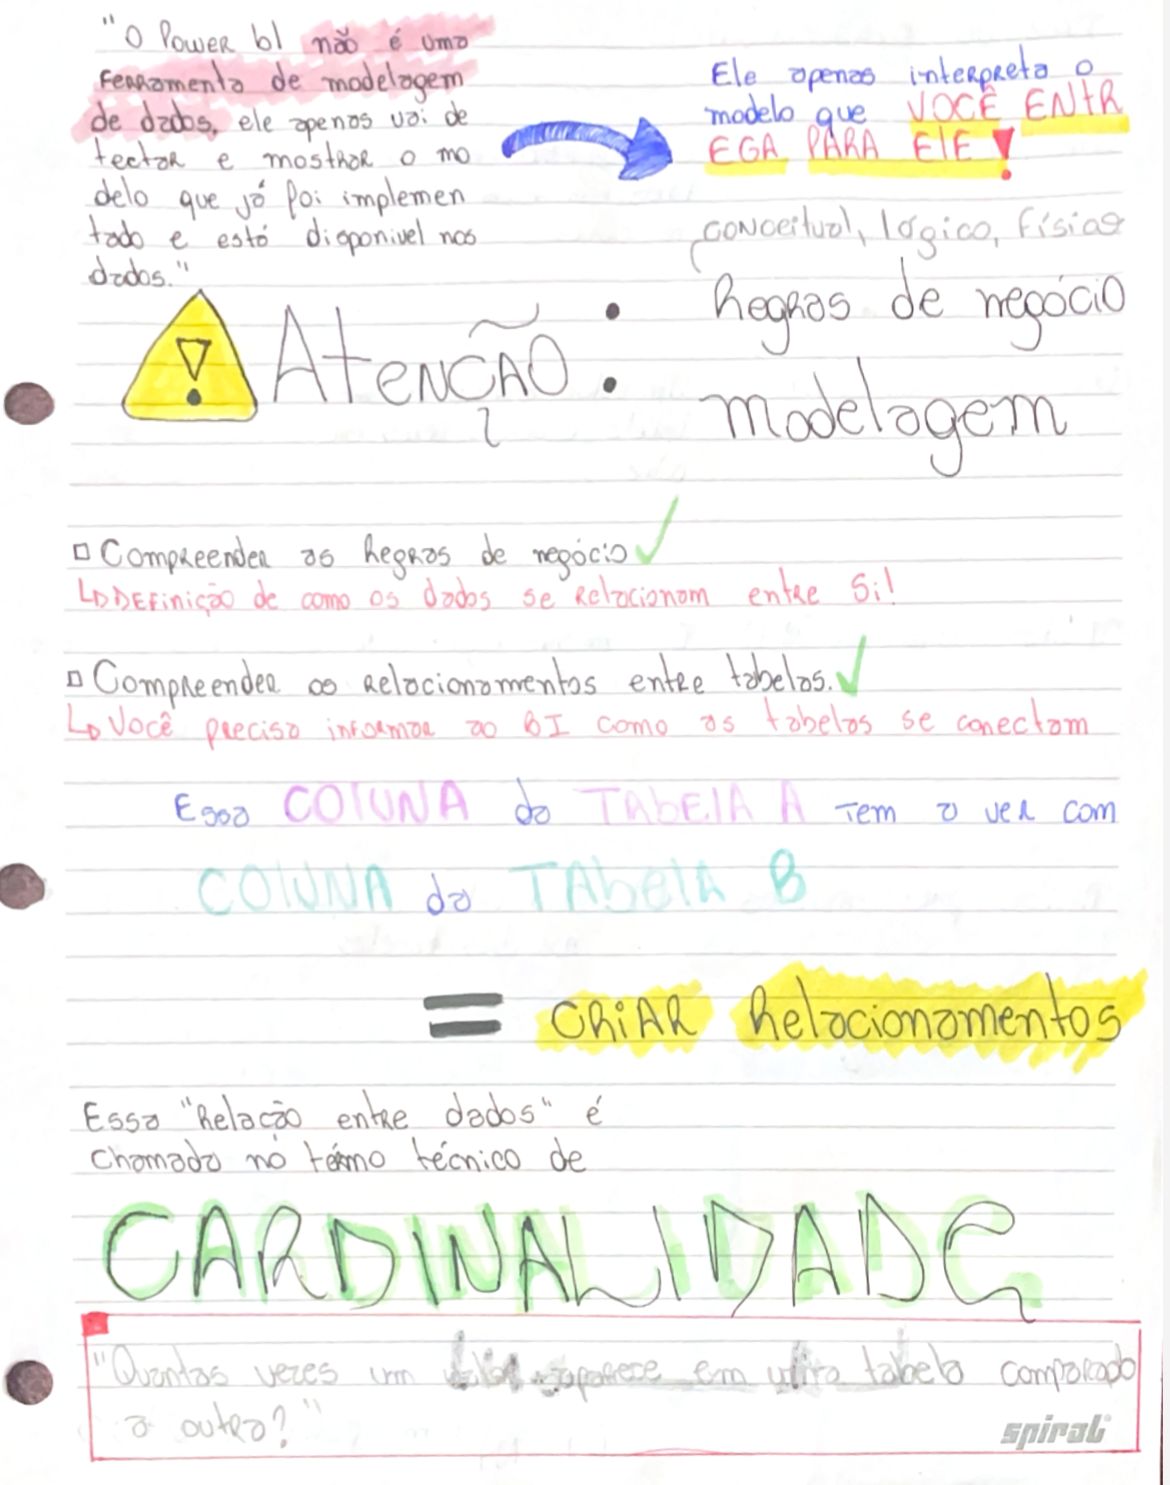 "O Power bI não é uma
ferramenta de modelagem
de dados, ele apenas vai de
tectar e mostrar o mo
delo que já foi implemen
tado e está disponivel nos
dados."
Ele apenas interpreta o
modelo que VOCÊ ENTR
EGA PARA ElE!
conceitual, lógico, físico
Regras de negócio
modelagem
AtENÇÃO:
Compreender as Regras de negócio
DEfinição de como os dados se Relacionam entre Si!
Compreender os Relacionamentos entre tabelas.
Você precisa informar ao BI como as tabelas se conectam
Essa COlUNA da TAbElA A Tem a ver com
COlUNA da TAbelA B
= CRiAR Relacionamentos
Essa "Relação entre dados" é
chamada no térmo técnico de
CARDINALIDADE
"Quantas vezes um valor aparece em uma tabela comparado
a outra?"
spiral